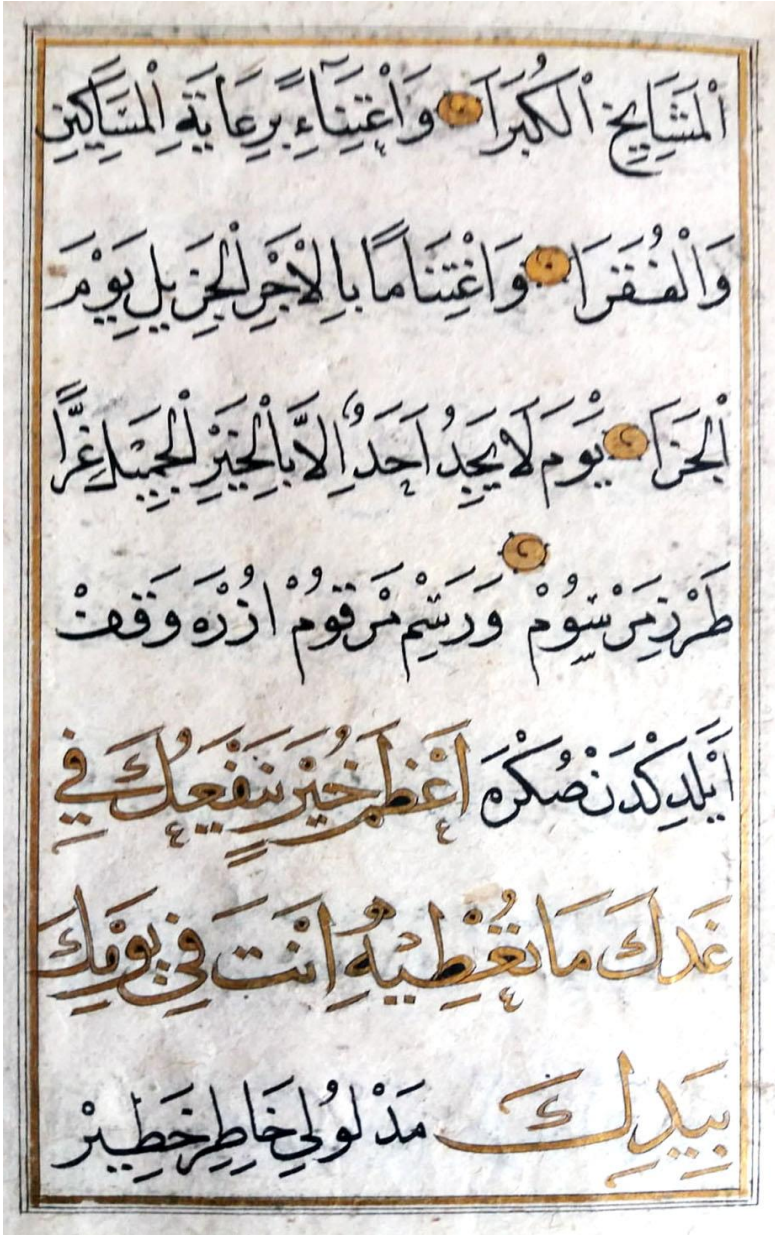 اَلْمَشَايِخِ الْكُبَرَا وَاَعْتِنَاءً بِرِعَايَةِ الْمَسَاكِينِ
وَالْفُقَرَا وَاغْتِنَامًا بِالْاَجْرِ الْجَزِيلِ يَوْمَ
الْجَزَا يَوْمَ لَا يَجِدُ اَحَدٌ اِلَّا بِالْخَيْرِ الْجَمِيلِ عِزًّا
طَرْزِ مَرْسُومْ وَرَسْمِ مَرْقُومْ اُزْرَه وَقَفْ
اَيْلَدِكْدَنْ صُكْرَه اَعْظَمُ خَيْرٍ يَنْفَعُكَ فِي
غَدِكَ مَا تُعْطِيهُ اَنْتَ فِي يَوْمِكَ
بِيَدِكَ مَدْلُولِي خَاطِرِ خَطِيرْ